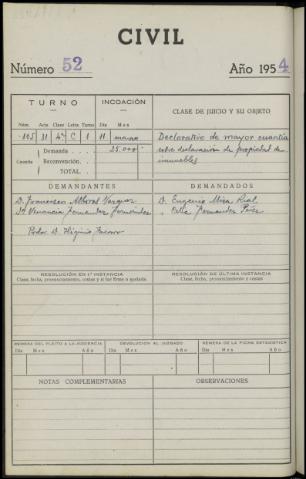 CIVIL
Número 52 Año 1954
TURNO INCOACIÓN CLASE DE JUICIO Y SU OBJETO
Núm. Acta Clase Letra Turno Día Mes
105 21 4ª C 1 11 marzo Declarativo de mayor cuantía
Cuantía Demanda 25.000 sobre declaración de propiedad de
Reconvención inmuebles
TOTAL
DEMANDANTES DEMANDADOS
D. Francisco Vazquez D. Eugenio Mira Rial
Dª Venancia Fernandez Fernandez Fernandez Perez
Prdor D. Higinio
RESOLUCIÓN EN 1ª INSTANCIA RESOLUCIÓN DE ÚLTIMA INSTANCIA
Clase, fecha, pronunciamiento, costas y si fue firme o apelada Clase, fecha, pronunciamiento y costas
REMESA DEL PLEITO A LA AUDIENCIA DEVOLUCIÓN AL JUZGADO REMESA DE LA FICHA ESTADÍSTICA
Día Mes Año Día Mes Año Día Mes Año
NOTAS COMPLEMENTARIAS OBSERVACIONES